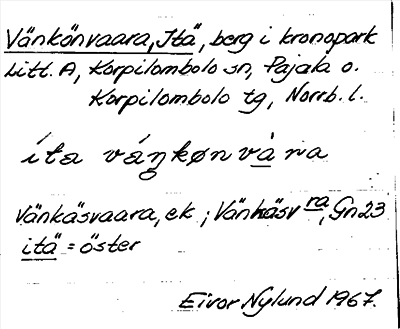 Vänkönvaara, Itä, berg i kronopark
Litt. A, Korpilombolo sn, Pajala o.
Korpilombolo tg, Norrb. l.
íta váŋkøn và ra
Vänkäsvaara, ek ; Vänkäsv ra, Gn 23
itä = öster
Eivor Nylund 1967.